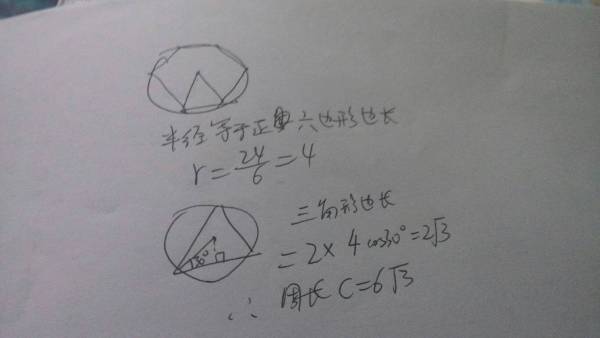 半径等于正六边形边长
r=24/6=4
三角形边长
30°
=2×4cos30°=2√3
∴ 周长C=6√3